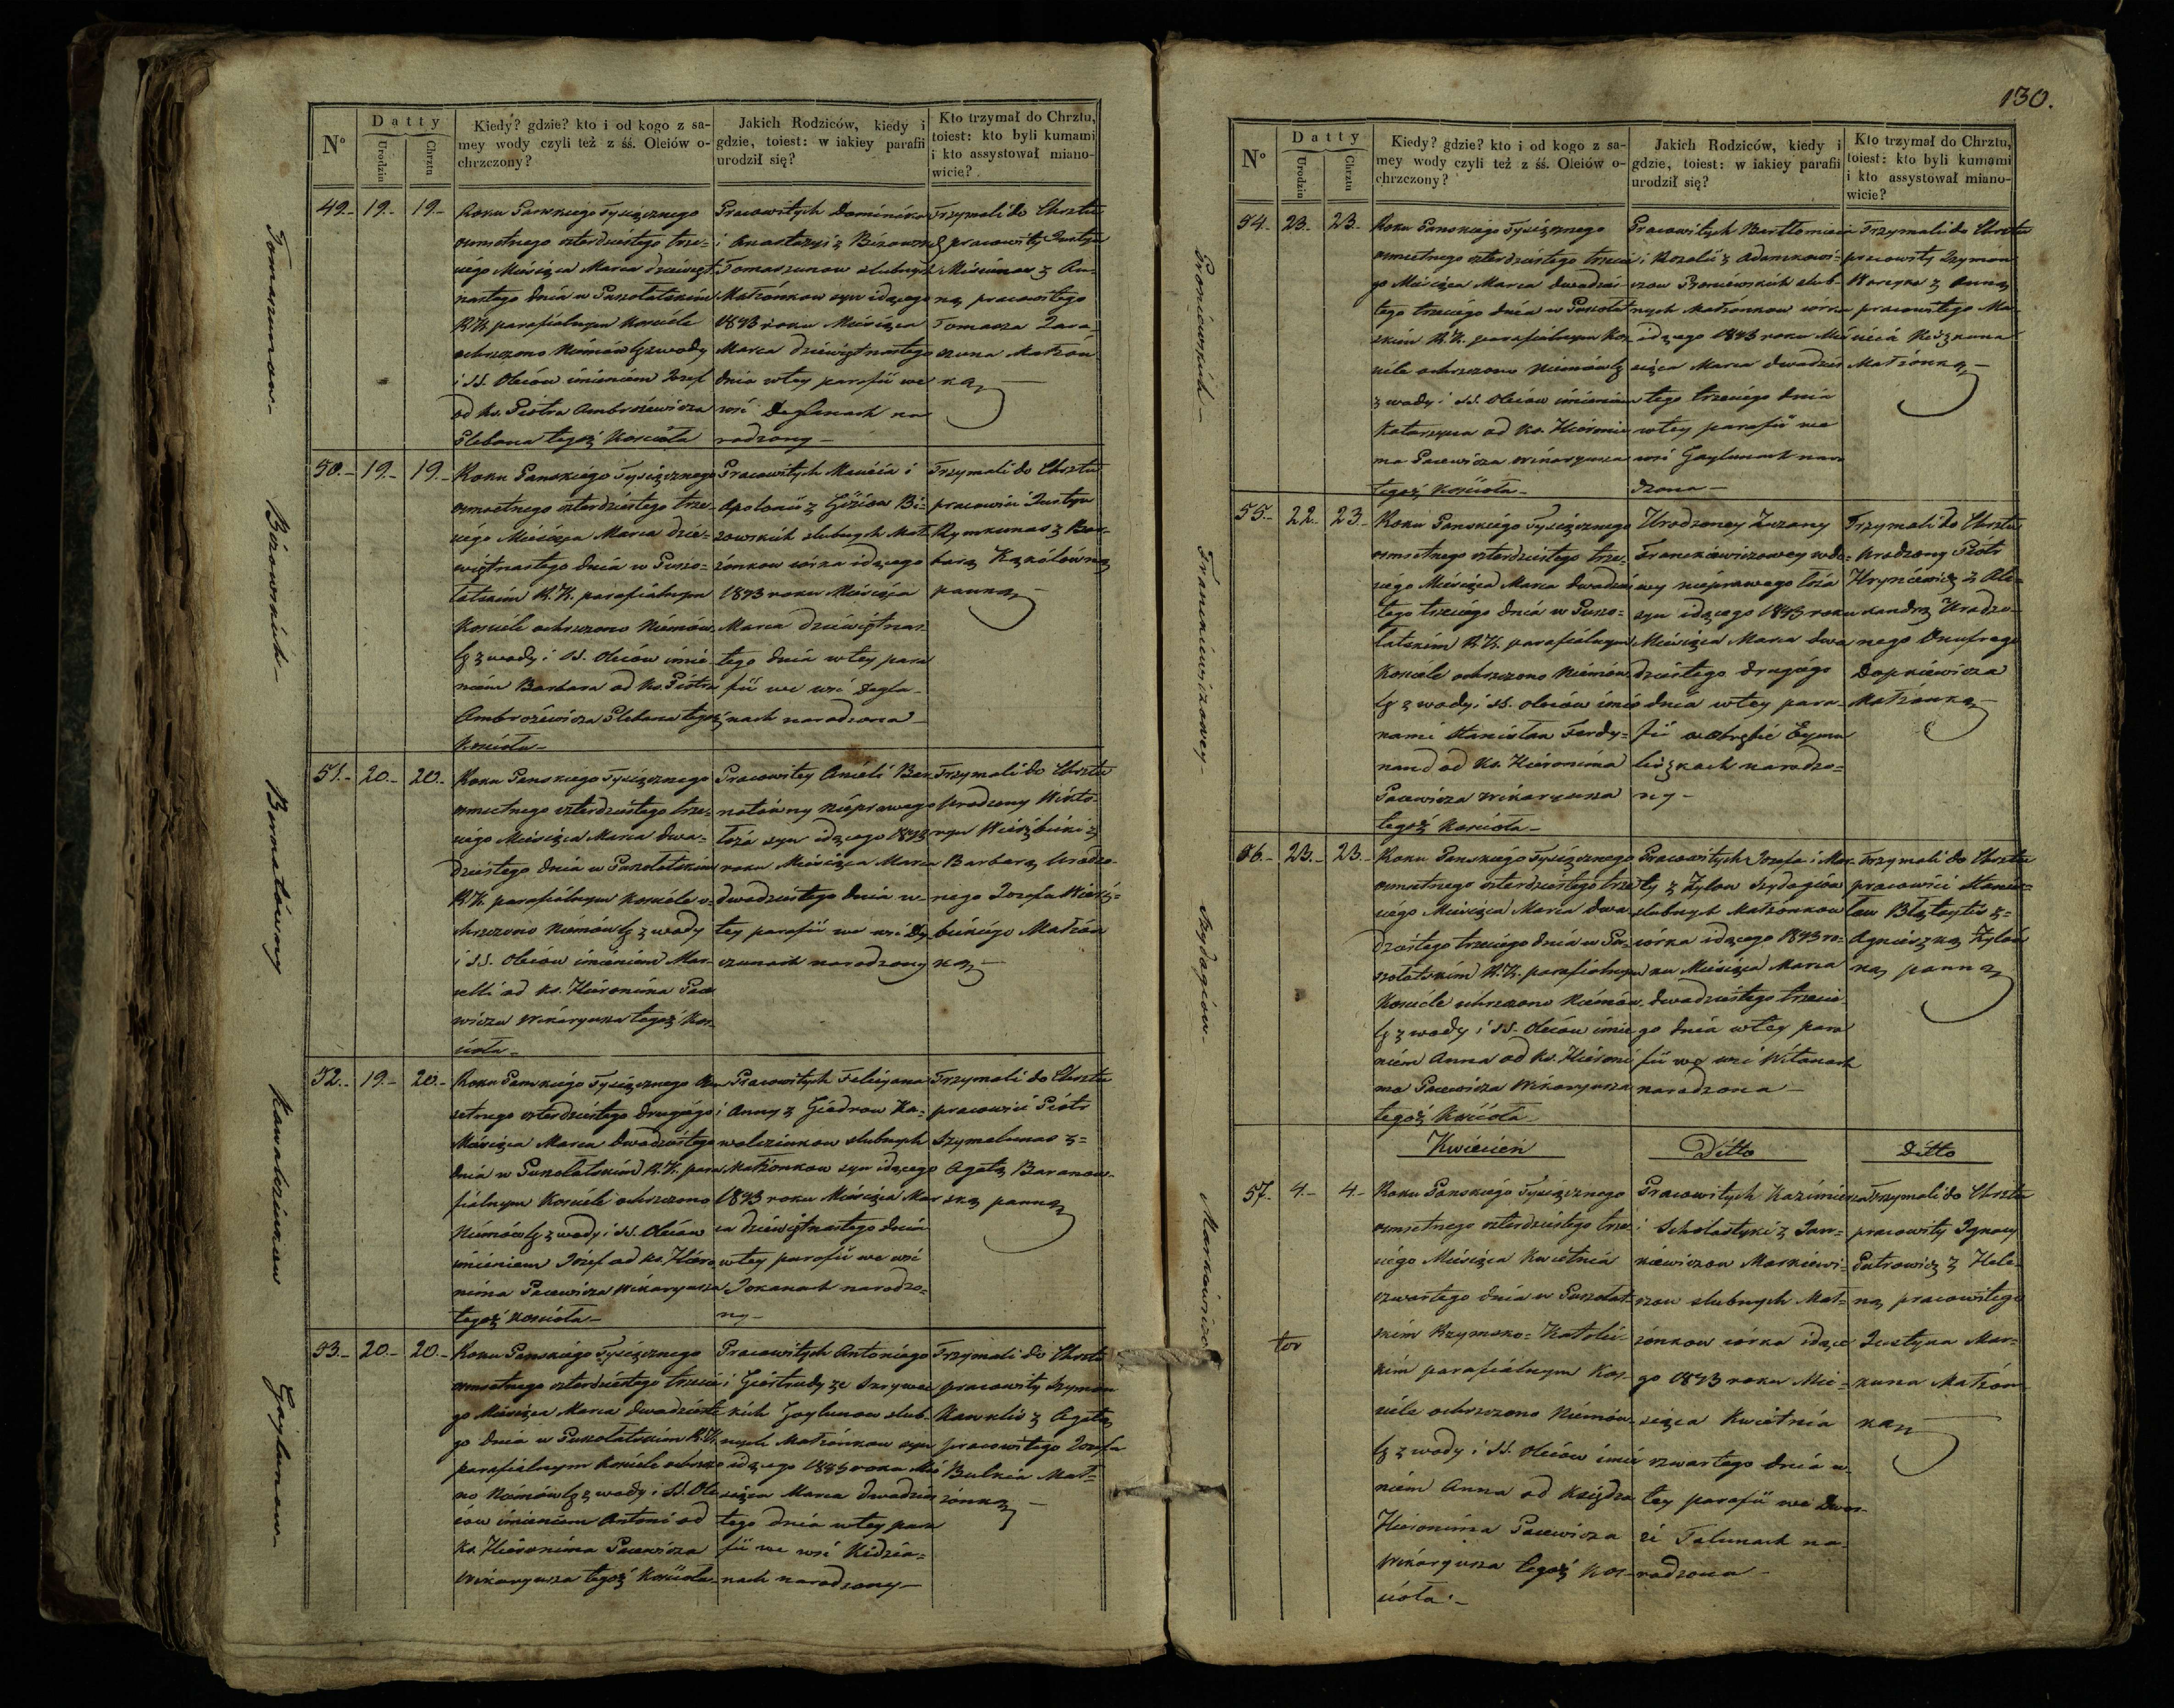 No
Datty
Urodzin
Chrztu
Kiedy? gdzie? kto i od kogo z sa-
mey wody czyli też z śś. Oleiów o-
chrzczony?
Jakich Rodziców, kiedy i
gdzie, toiest: w iakiey parafii
urodził się?
Kto trzymał do Chrztu,
toiest: kto byli kumami
i kto assystował miano-
wicie?
Tomaszunow
49. 19. 19.
Roku Panskiego Tysiącznego
osmsetnego czterdziestego trze-
ciego Miesiąca Marca dziewięt-
nastego dnia w Puszołatskim
RK. parafialnym Kosciele
ochrzczono Niemowlę z wody
i SS. Oleiów imieniem Jozef
od ks. Piotra Ambrożewicza
Plebana tegoż Kościoła
Pracowitych Dominika
i Anastazyi z
Tomaszunow slubnych
Małżonkow syn idącego
1843 roku Miesiąca
Marca dziewiętnastego
dnia w tey parafii we
wsi Deglenach na
rodzony
Trzymali do Chrztu
pracowity Justyn
Misiunas z An-
ną pracowitego
Tomasza
Małżon
ką
Bizowskich
50. 19. 19.
Roku Panskiego Tysiącznego
osmsetnego czterdziestego trze-
ciego Miesiąca Marca dzie-
więtnastego dnia w Puszo-
łatskim R.K. parafialnym
Kosciele ochrzczono Niemow-
lę z wody i SS. Oleiów imie-
niem Barbara od ks. Piotra
Ambrożewicza Plebana tegoż
Kościoła
Pracowitych Macieia i
Apolonii z Bi-
zowskich slubnych Mał-
żonkow córka idącego
1843 roku Miesiąca
Marca dziewiętnas-
tego dnia w tey para
fii we wsi Degle-
nach narodzona
Trzymali do Chrztu
pracowici Justyn
Rymkunas z Bar-
barą
panną
Bernatówny
51. 20. 20.
Roku Panskiego Tysiącznego
osmsetnego czterdziestego trze-
ciego Miesiąca Marca dwu-
dziestego dnia w Puszołatskim
R.K. parafialnym Kosciele o-
chrzczono Niemowlę z wody
i SS. Oleiów imieniem Mar-
celli od ks. Hieronima Pace
wicza Wikaryusza tegoż Koś-
cioła
Pracowitey Anieli Ber
natówny nieprawego
łoża syn idącego 1843
roku Miesiąca Marca
dwudziestego dnia w
tey parafii we wsi
narodzony
Trzymali do Chrztu
urodzony Wikto-
ryn z
Barbarą Urodzo-
nego Jozefa
Małżon
ką
Kawalczunow
52. 19. 20.
Roku Panskiego Tysiącznego Osm
setnego czterdziestego drugiego
Miesiąca Marca dwudziestego
dnia w Puszołatskim R.K. para
fialnym Kosciele ochrzczono
Niemowlę z wody i SS. Oleiów
imieniem Jozef od ks. Hiero
nima Pacewicza Wikaryusza
tegoż Kościoła
Pracowitych Felicyana
i Anny z Giedrow Ka-
walczunkow slubnych
Małżonkow syn idącego
1843 roku Miesiąca Mar
ca dziewiętnastego dnia
w tey parafii we wsi
Jokanach narodzo-
ny
Trzymali do Chrztu
pracowici Piotr
Szymelunas z
Agatą Baranow-
ską panną
Gaylunow
53. 20. 20.
Roku Panskiego Tysiącznego
osmsetnego czterdziestego trzecie
go Miesiąca Marca dwudzieste
go dnia w Puszołatskim R.K.
parafialnym Kosciele ochrzczo
no Niemowlę z wody i SS. Ole
iów imieniem Antoni od
ks. Hieronima Pacewicza
Wikaryusza tegoż Kościoła
Pracowitych Antoniego
i Giertrudy ze
Gaylunow slub-
nych Małżonkow syn
idącego 1843 roku Mie
siąca Marca dwudzies
tego dnia w tey para
fii we wsi Kidzia-
nach narodzony
Trzymali do Chrztu
pracowity Szymon
z Agatą
pracowitego Jozefa
Małżonką
130.
No
Datty
Urodzin
Chrztu
Kiedy? gdzie? kto i od kogo z sa-
mey wody czyli też z śś. Oleiów o-
chrzczony?
Jakich Rodziców, kiedy i
gdzie, toiest: w iakiey parafii
urodził się?
Kto trzymał do Chrztu,
toiest: kto byli kumami
i kto assystował miano-
wicie?
Broniewskich
54. 23. 23.
Roku Panskiego Tysiącznego
osmsetnego czterdziestego trzecie
go Miesiąca Marca dwudzies
tego trzeciego dnia w Puszołat
skim R.K. parafialnym Koś
ciele ochrzczono Niemowlę
z wody i SS. Oleiów imieniem
Katarzyna od ks. Hieroni
ma Pacewicza Wikaryusza
tegoż Kościoła
Pracowitych Bartłomieia
i Rozalii z Adamkowi-
czow Broniewskich slub-
nych Małżonkow córka
idącego 1843 roku Mie
siąca Marca dwudzies
tego trzeciego dnia
w tey parafii we
wsi Gaylunach naro
dzona
Trzymali do Chrztu
pracowity Szymon
z Anną
pracowitego Ma-
cieia
Małżonką
Franckiewiczowey
55. 22. 23.
Roku Panskiego Tysiącznego
osmsetnego czterdziestego trze-
ciego Miesiąca Marca dwudzies
tego trzeciego dnia w Puszo-
łatskim R.K. parafialnym
Kosciele ochrzczono Niemow
lę z wody i SS. Oleiów imio
nami Stanisław Ferdy-
nand od ks. Hieronima
Pacewicza Wikaryusza
tegoż Kościoła
Urodzoney Zuzany
Franckiewiczowey wdo-
wy nieprawego łoża
syn idącego 1843 roku
Miesiąca Marca dwu
dziestego drugiego
dnia w tey para-
fii w Obrębie
narodzo-
ny
Trzymali do Chrztu
Urodzony Piotr
Hryncewicz z Ale-
xandrą Urodzo-
nego Onufrego
Dapkiewicza
Małżonką
Szydagiow
56. 23. 23.
Roku Panskiego Tysiącznego
osmsetnego czterdziestego trze
ciego Miesiąca Marca dwu
dziestego trzeciego dnia w Pu-
szołatskim R.K. parafialnym
Kosciele ochrzczono Niemow-
lę z wody i SS. Oleiów imie
niem Anna od ks. Hieroni
ma Pacewicza Wikaryusza
tegoż Kościoła
Pracowitych Jozefa i Mar-
ty z Zylow Szydagiow
slubnych Małżonkow
córka idącego 1843 ro-
ku Miesiąca Marca
dwudziestego trzecie
go dnia w tey para
fii we wsi Witanach
narodzona
Trzymali do Chrztu
pracowici Stanis-
ław z
Agnieszką
panną
Kwiecień
Ditto
Ditto
Markiewiczow
57. 4. 4.
Roku Panskiego Tysiącznego
osmsetnego czterdziestego trze
ciego Miesiąca Kwietnia
czwartego dnia w Puszołat
skim Rzymsko-Katolic
kim parafialnym Koś-
ciele ochrzczono Niemow-
lę z wody i SS. Oleiów imie
niem Anna od Księdza
Hieronima Pacewicza
Wikaryusza tegoż Koś-
cioła
Pracowitych Kazimierza
i Scholastyki z Jan-
kiewiczow Markiewi-
czow slubnych Mał-
żonkow córka idące
go 1843 roku Mie-
siąca Kwietnia
czwartego dnia w
tey parafii we Dwor-
ze Talunach na-
rodzona
Trzymali do Chrztu
pracowity Ignacy
Putrowicz z Hele-
ną pracowitego
Justyna Mar-
kuna Małżon-
ką